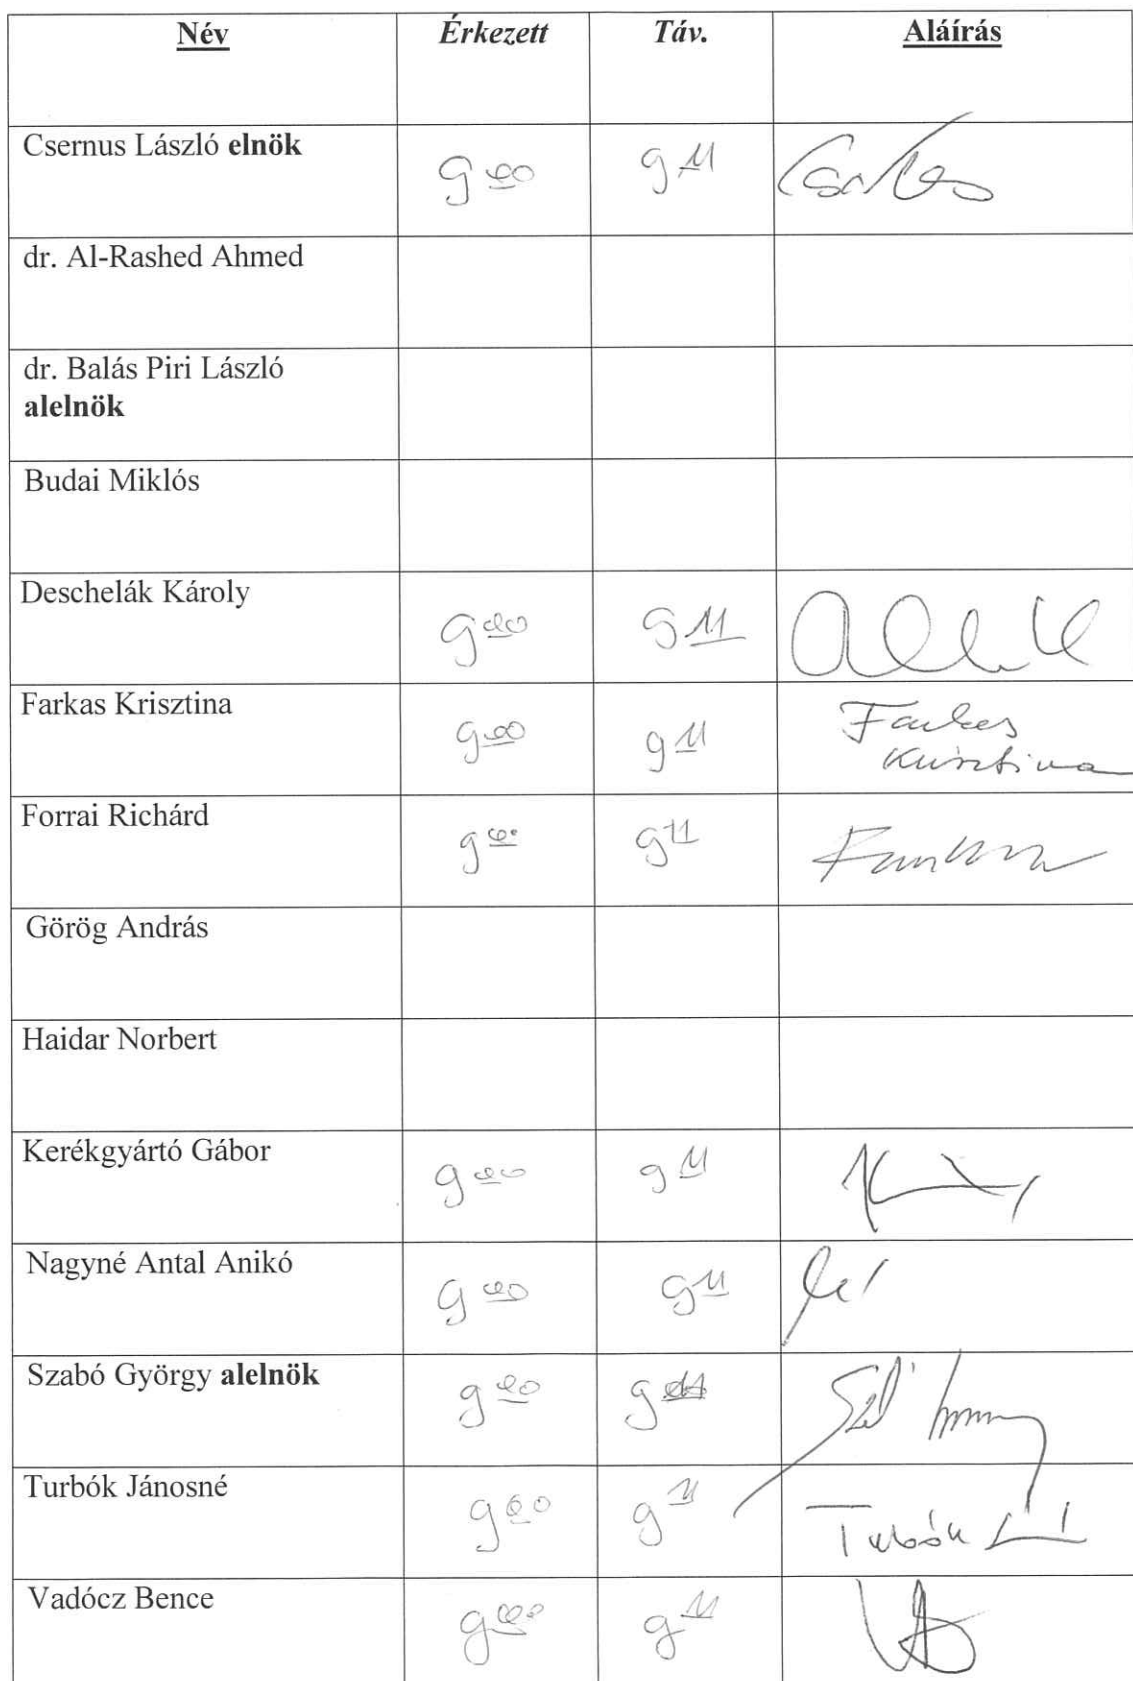 Név Érkezett Táv. Aláírás
Csernus László elnök
9 00 9 11
dr. Al-Rashed Ahmed
dr. Balás Piri László
alelnök
Budai Miklós
Deschelák Károly
9 00 9 11
Farkas Krisztina
9 00 9 11 Farkas
Krisztina
Forrai Richárd
9 00 9 11
Görög András
Haidar Norbert
Kerékgyártó Gábor
9 00 9 11
Nagyné Antal Anikó
9 00 9 11
Szabó György alelnök
9 00 9
Turbók Jánosné
9 00 9 11 Turbók
Vadócz Bence
9 00 9 11